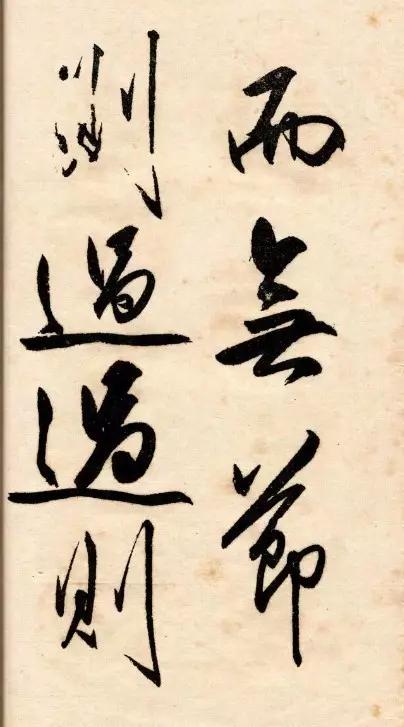 而無節
則過過則